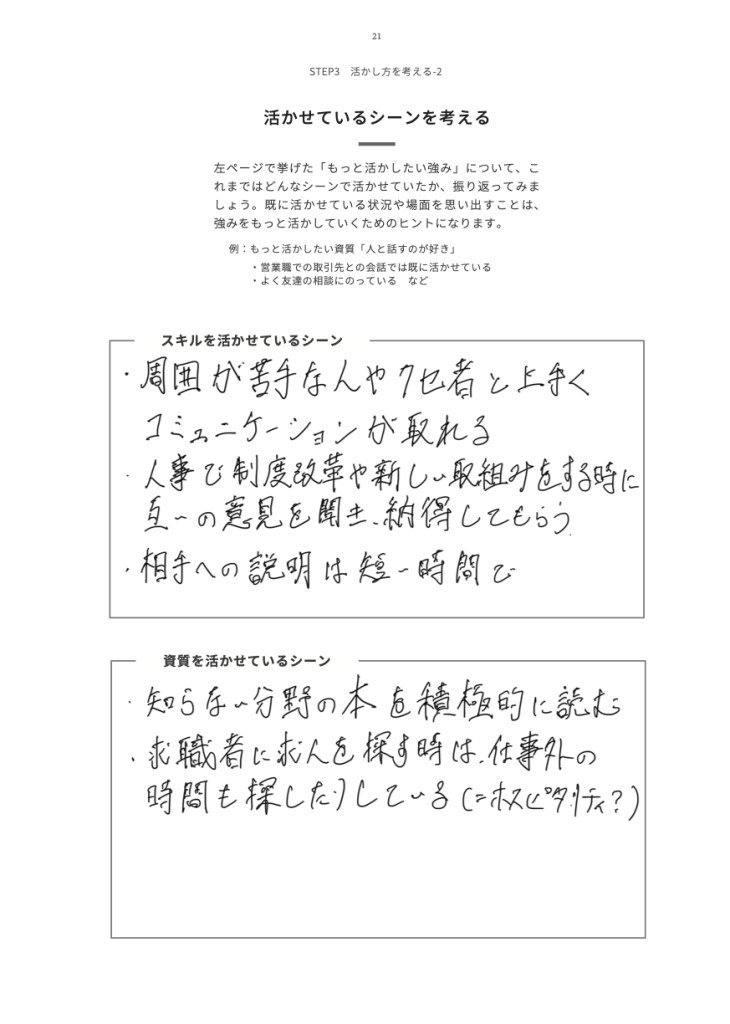 21
STEP3 活かし方を考える-2
活かせているシーンを考える
左ページで挙げた「もっと活かしたい強み」について、こ
れまではどんなシーンで活かせていたか、振り返ってみま
しょう。既に活かせている状況や場面を思い出すことは、
強みをもっと活かしていくためのヒントになります。
例：もっと活かしたい資質「人と話すのが好き」
・営業職での取引先との会話では既に活かせている
・よく友達の相談にのっている など
スキルを活かせているシーン
・周囲が苦手な人やクセ者と上手く
コミュニケーションが取れる
・人事で制度改革や新しい取組みをする時に
互いの意見を聞き、納得してもらう
・相手への説明は短い時間で
資質を活かせているシーン
・知らない分野の本を積極的に読む
・求職者に求人を探す時は、仕事外の
時間も探したりしている(=ホスピタリティ?)